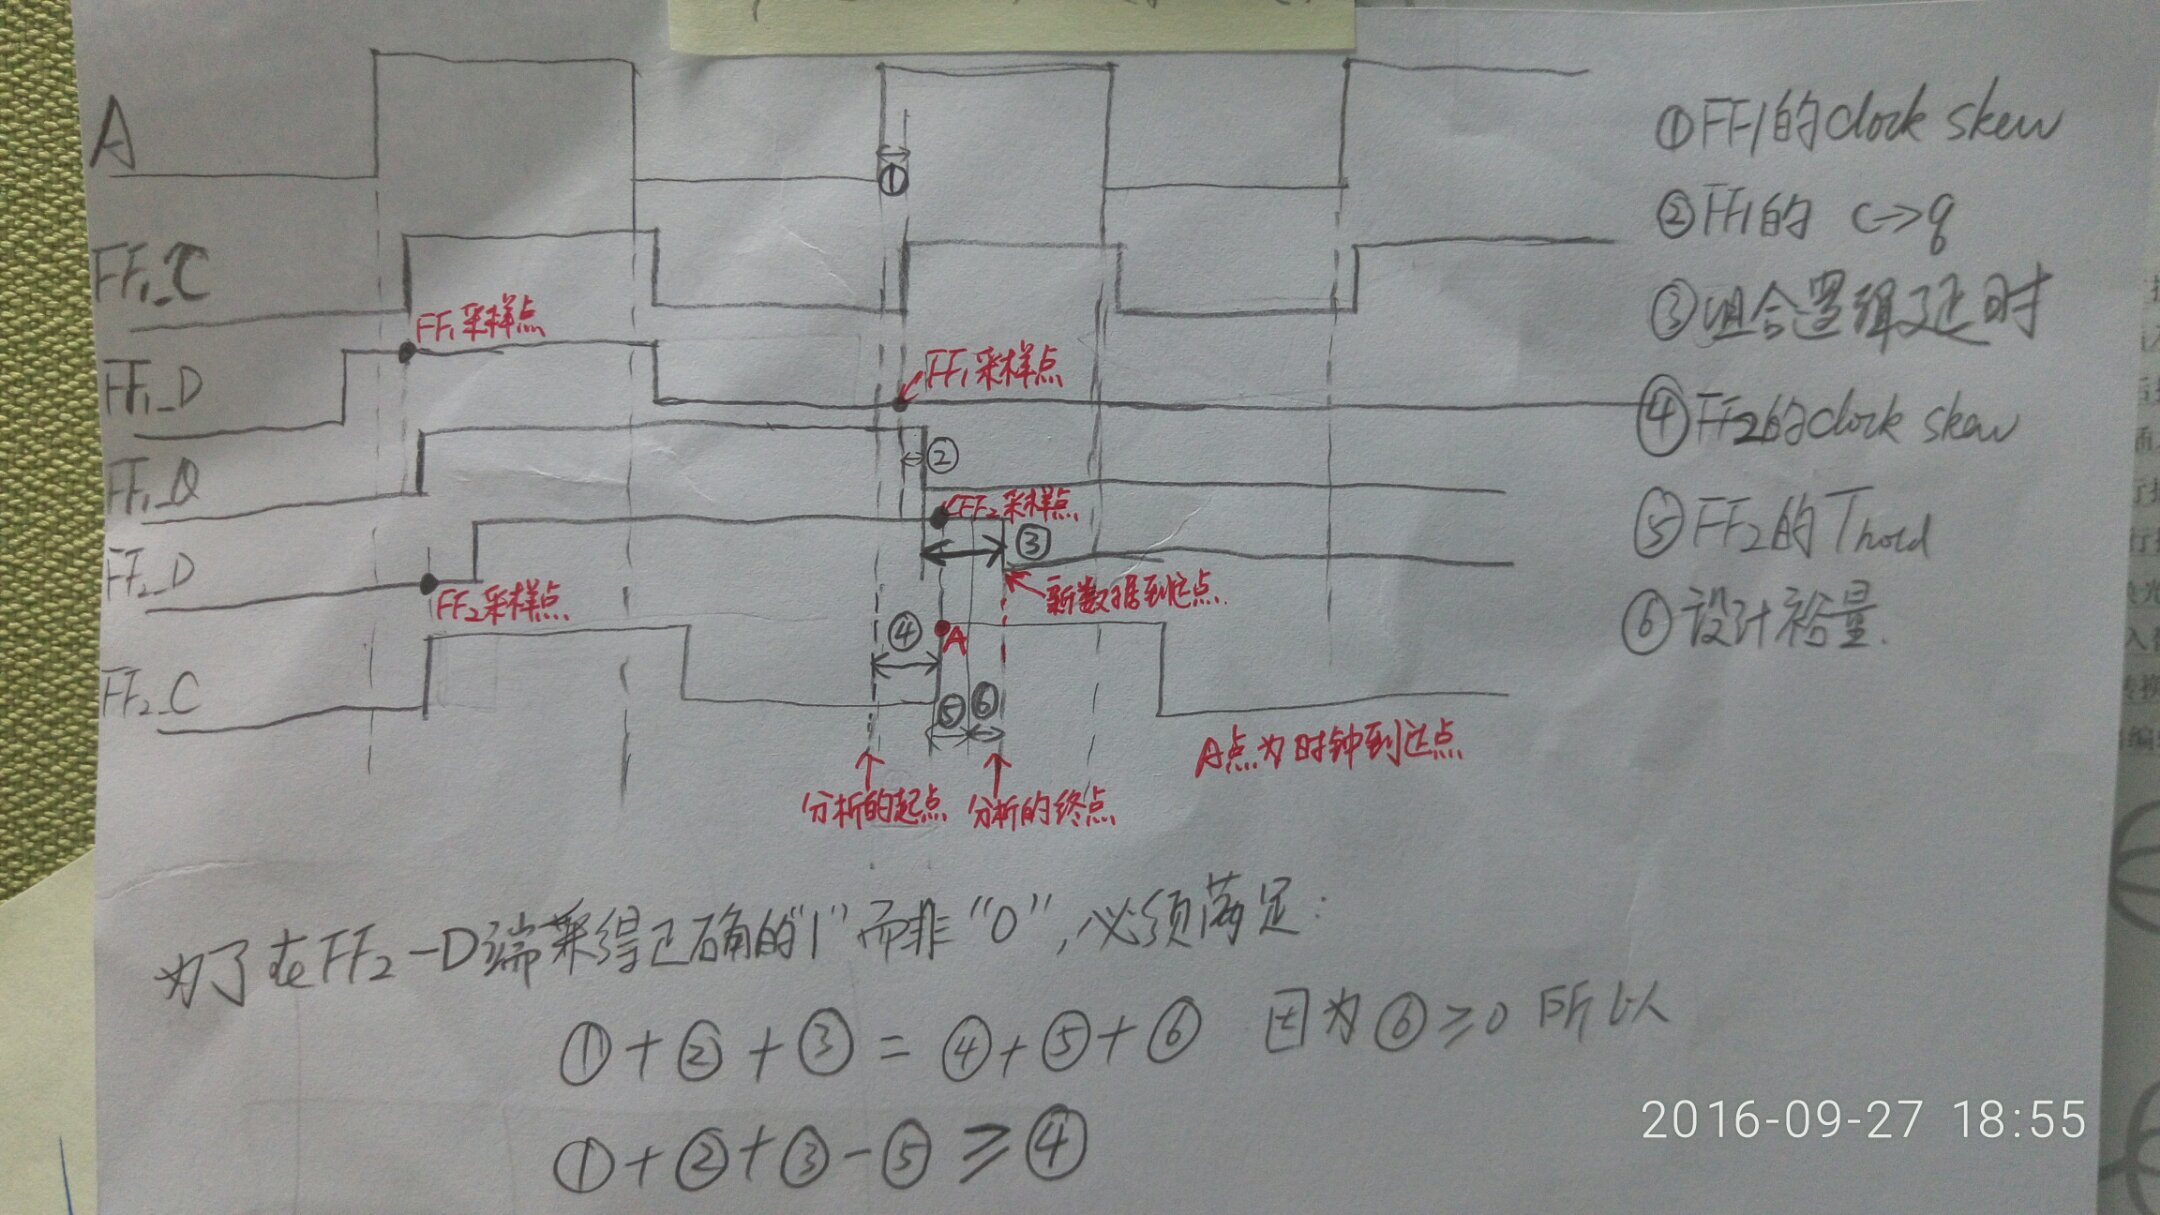 A
①
①FF1的clock skew
②FF1的 C→q
FF₁_C
FF₁采样点
③组合逻辑延时
FF₁采样点
FF₁_D
④FF2的clock skew
②
FF₁_Q
FF₂采样点
③
⑤FF2的Thold
FF₂_D
FF₂采样点
新数据到达点
④
A
⑥设计裕量.
FF₂_C
⑤
⑥
A点为时钟到达点
分析的起点
分析的终点
为了在FF₂-D端采得正确的"1"而非"0",必须满足:
①+②+③=④+⑤+⑥ 因为⑥≥0 所以
①+②+③-⑤≥④
2016-09-27 18:55